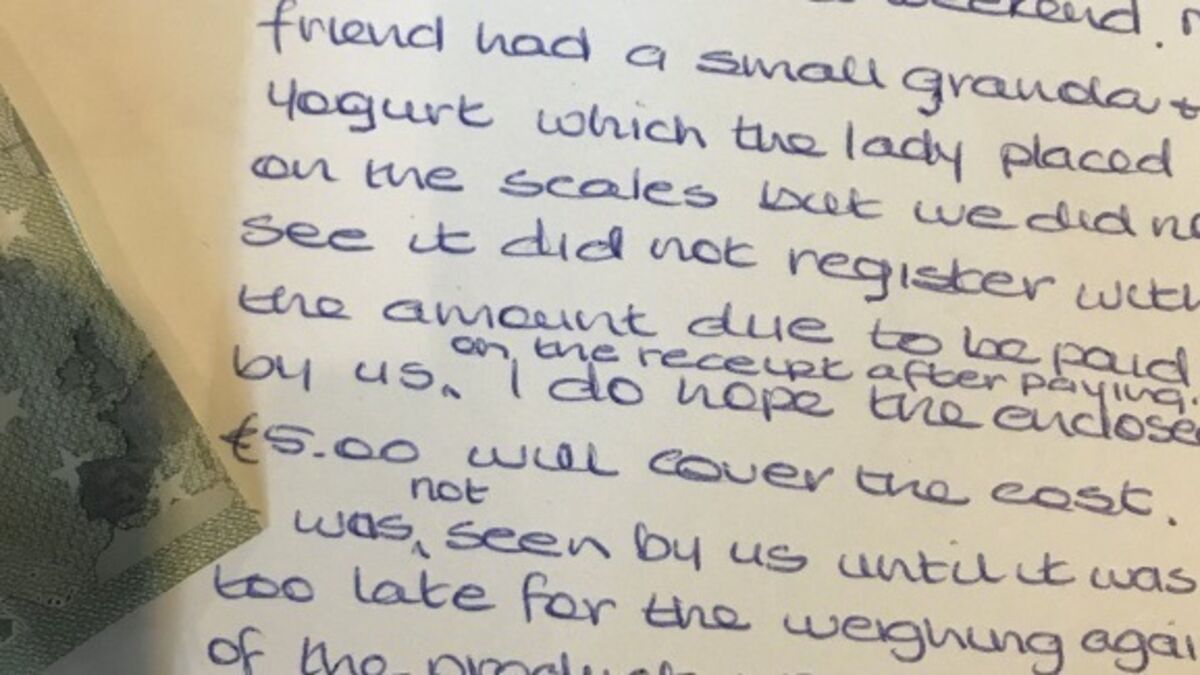 weekend.
friend had a small granda +
yogurt which the lady placed
on the scales but we did no
see it did not register with
the amount due to be paid
on the receipt after paying.
by us. I do hope the enclose
€5.00 will cover the cost.
not
was seen by us until it was
too late for the weighing agai
of the product